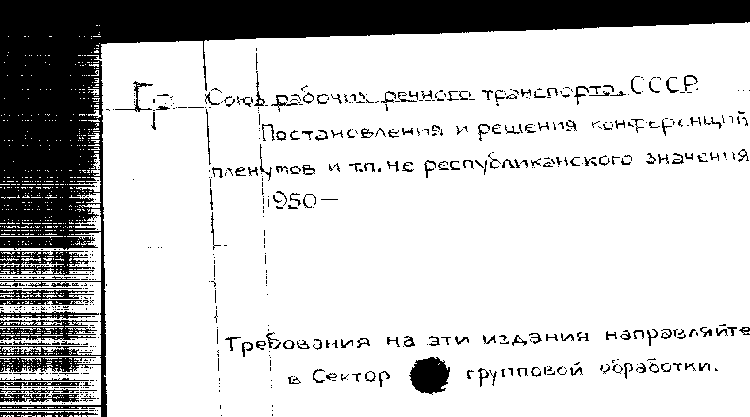 Гр Союз рабочих речного транспорта. СССР.
Постановления и решения конференций
пленумов и т.п. не республиканского значения
1950—
Требования на эти издания направляйте
в Сектор групповой обработки.